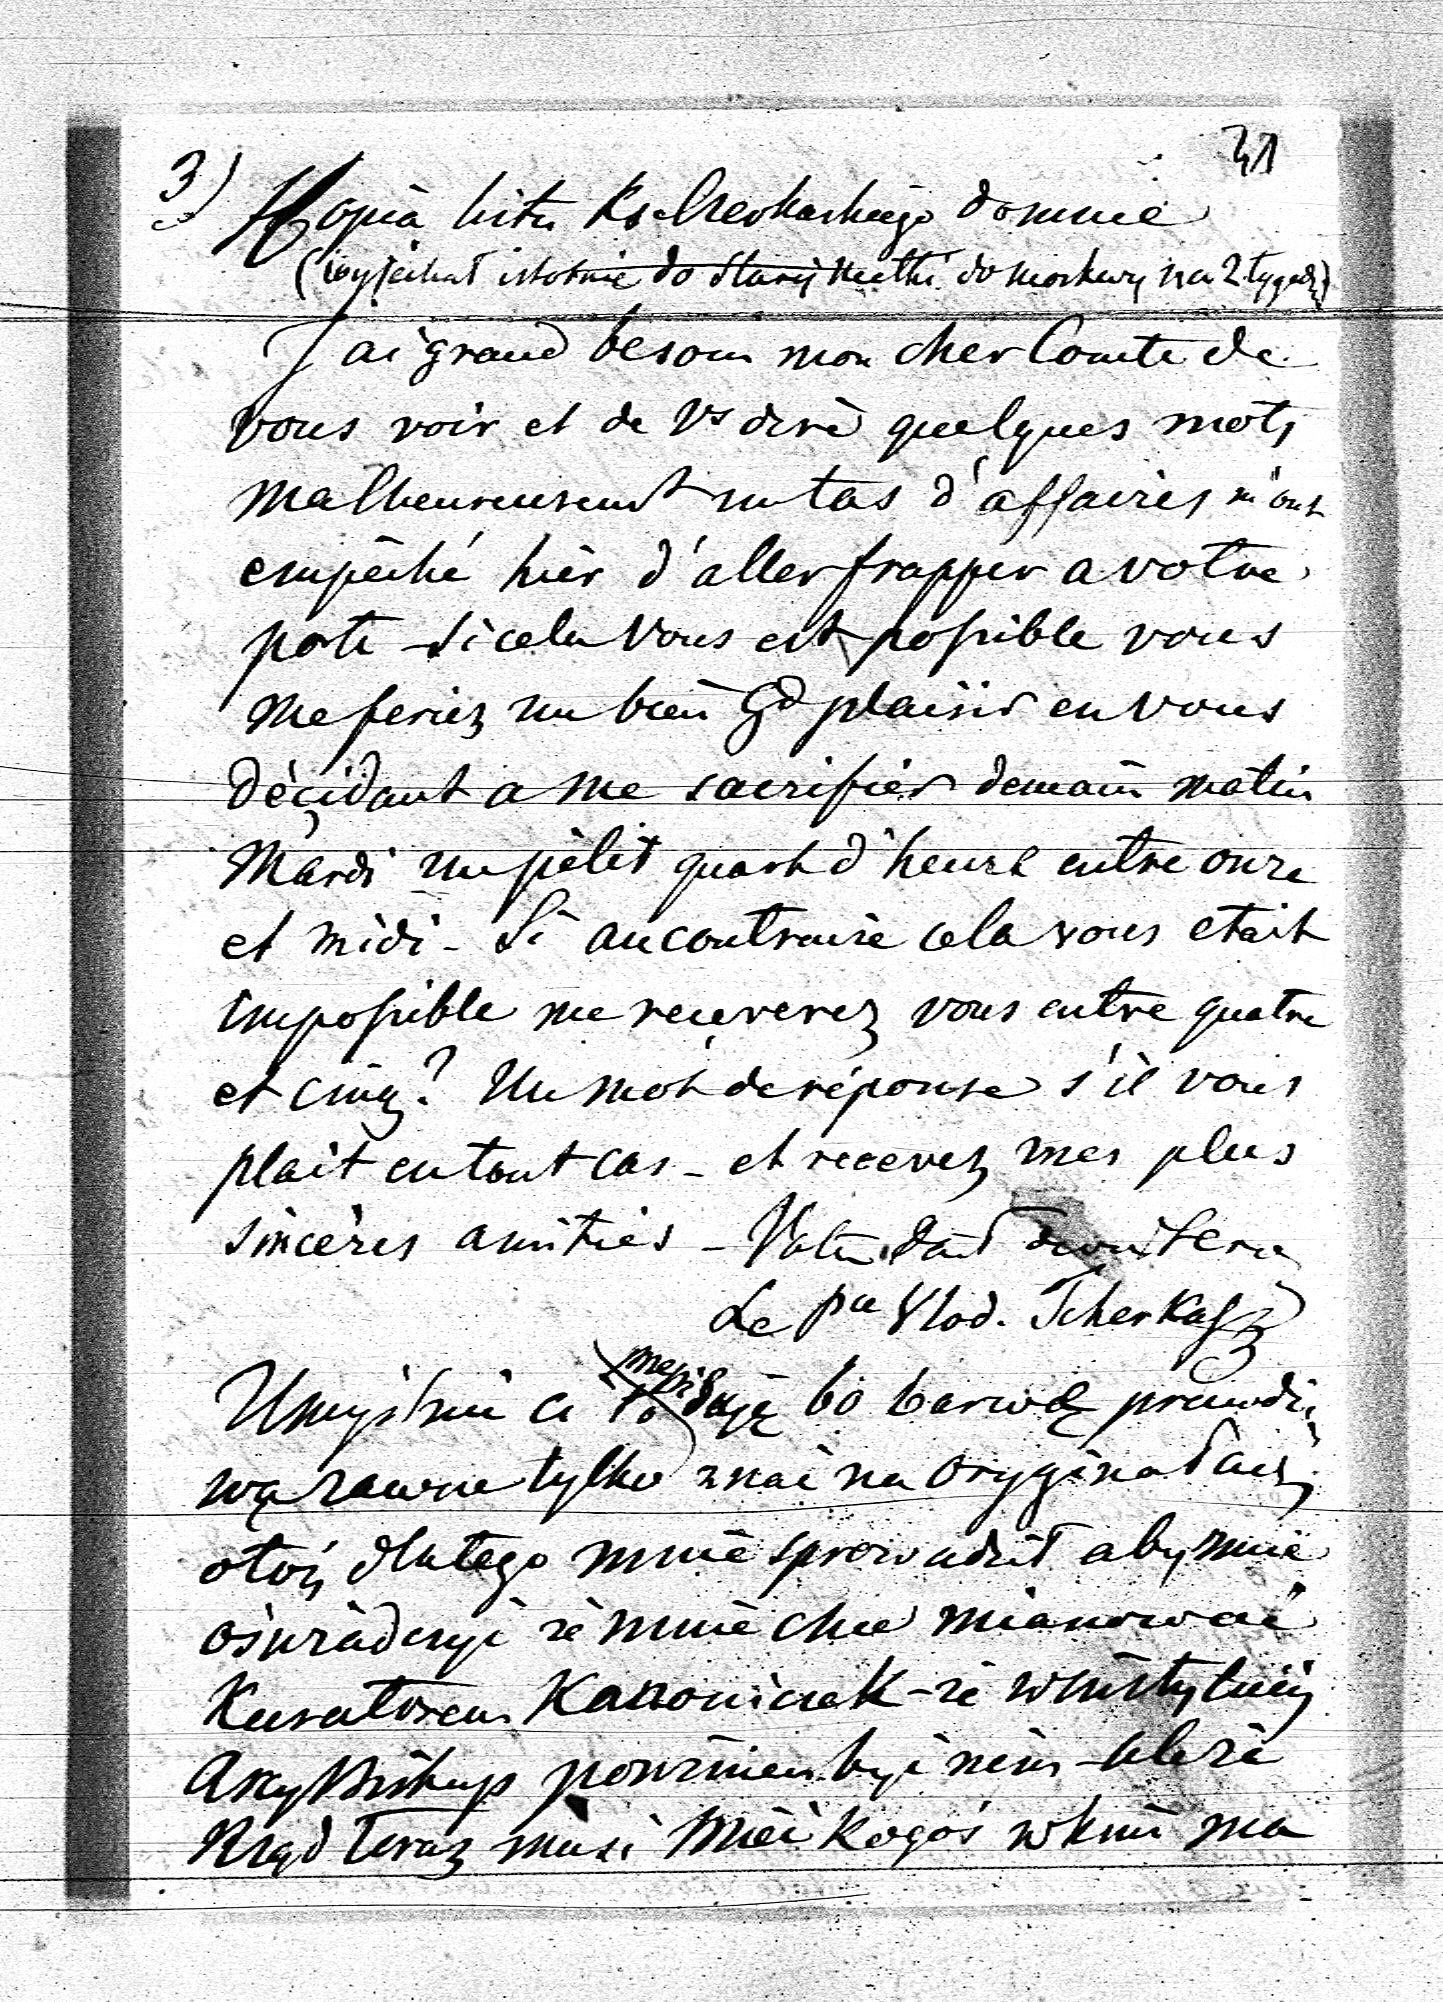 31
3) Kopia listu Ks. Czerkaskiego do mnie
(wyjechał istotnie do starej Matki do Moskwy na 2 tygod)
J'ai grand besoin mon cher Comte de
vous voir et de Vs dire quelques mots
malheureusement un tas d'affaires m'ont
empêché hier d'aller frapper a votre
porte – Si cela vous est possible vous
me feriez un bien Gd plaisir en vous
décidant a me sacrifier demain matin
Mardi un petit quart d'heure entre onze
et midi – Si au contraire cela vous etait
impossible me recevrez vous entre quatre
et cinq? Un mot de réponse s'il vous
plait en tout cas – et recevez mes plus
sincères amitiés – Votre tout
Le pce Vlod. Tcherkassky
Umyślnie ci to daję bo barwę prawdzi
wą zawsze tylko znać na oryginałach
otóż dlatego mnie sprowadził aby mnie
oświadczyć że mnie chce mianować
Kuratorem Kanoniczek – że w instytucji
Arcybiskup powinien być nim – ale że
Rząd teraz musi mieć kogoś w kim ma